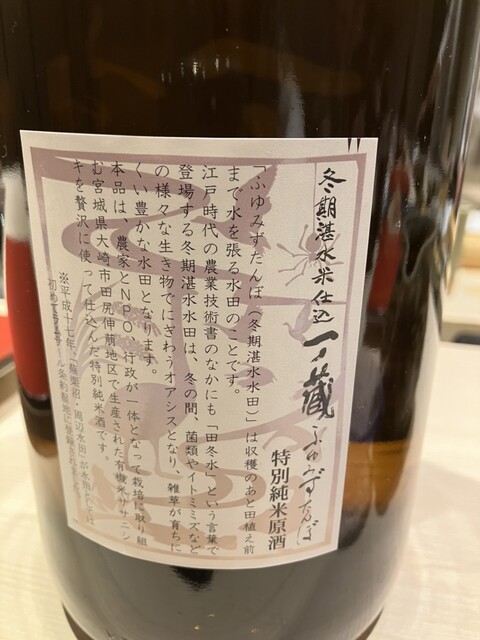 冬期湛水米仕込
一ノ蔵
ふゆみずたんぼ
特別純米原酒
「ふゆみずたんぼ（冬期湛水水田）」は収穫のあと田植え前
まで水を張る水田のことです。
江戸時代の農業技術書のなかにも「田冬水」という言葉で
登場する冬期湛水水田は、冬の間、菌類やイトミミズなど
の様々な生き物でにぎわうオアシスとなり、雑草が育ちに
くい豊かな水田となります。
本品は、農家とＮＰＯ、行政が一体となって栽培に取り組
む宮城県大崎市田尻伸萠地区で生産された有機米ササニシ
キを贅沢に使って仕込んだ特別純米酒です。
※平成十七年、「蕪栗沼・周辺水田」が水田としては
初めてラムサール条約湿地に登録されました。